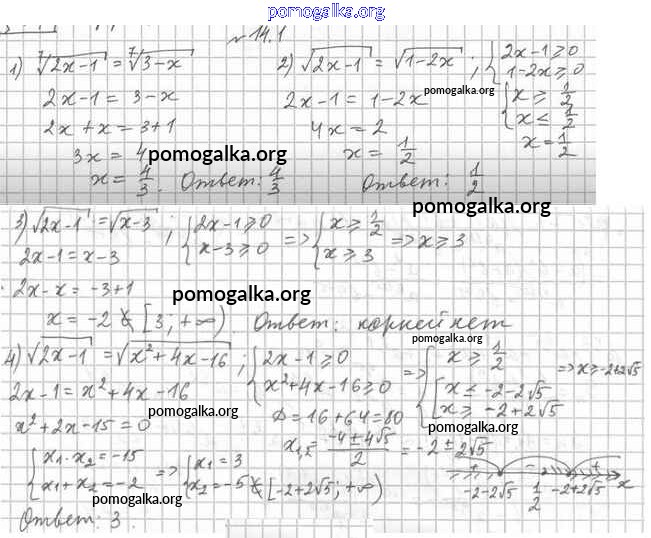 pomogalka.org
№ 14.1
1) ⁷√(2x-1) = ⁷√(3-x)
2x-1 = 3-x
2x+x = 3+1
3x = 4
x = 4/3. Ответ: 4/3
pomogalka.org
2) √(2x-1) = √(1-2x) ; { 2x-1 ≥ 0
1-2x ≥ 0
2x-1 = 1-2x
pomogalka.org
{ x ≥ 1/2
x ≤ 1/2
4x = 2
x = 1/2
x = 1/2
Ответ: 1/2
pomogalka.org
3) √(2x-1) = √(x-3) ; { 2x-1 ≥ 0
x-3 ≥ 0
=> { x ≥ 1/2
x ≥ 3
=> x ≥ 3
2x-1 = x-3
2x-x = -3+1
pomogalka.org
x = -2 ∉ [3; +∞). Ответ: корней нет
4) √(2x-1) = √(x²+4x-16) ; { 2x-1 ≥ 0
x²+4x-16 ≥ 0
=> { x ≥ 1/2
[ x ≤ -2-2√5
x ≥ -2+2√5
=> x ≥ -2+2√5
pomogalka.org
2x-1 = x²+4x-16
pomogalka.org
x²+2x-15 = 0
D = 16+64 = 80
x₁,₂ = (-4±4√5)/2 = -2±2√5
pomogalka.org
{ x₁·x₂ = -15
x₁+x₂ = -2
=> { x₁ = 3
x₂ = -5 ∉ [-2+2√5; +∞)
pomogalka.org
+ - +
-2-2√5 1/2 -2+2√5 x
Ответ: 3.